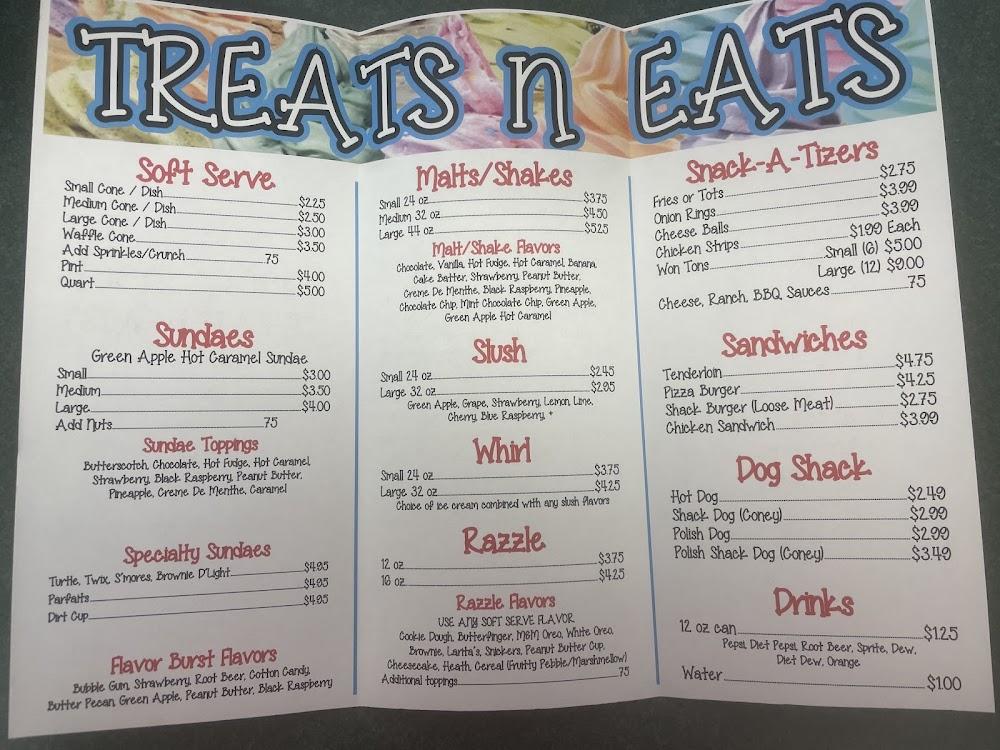 TREATS n EATS
Soft Serve
Small Cone / Dish $2.25
Medium Cone / Dish $2.50
Large Cone / Dish $3.00
Waffle Cone $3.50
Add Sprinkles/Crunch 75
Pint $4.00
Quart $5.00
Sundaes
Green Apple Hot Caramel Sundae
Small $3.00
Medium $3.50
Large $4.00
Add Nuts 75
Sundae Toppings
Butterscotch, Chocolate, Hot Fudge, Hot Caramel,
Strawberry, Black Raspberry, Peanut Butter,
Pineapple, Creme De Menthe, Caramel
Specialty Sundaes
Turtle, Twix, S'mores, Brownie D'Light $4.95
Parfaits $4.95
Dirt Cup $4.95
Flavor Burst Flavors
Bubble Gum, Strawberry, Root Beer, Cotton Candy,
Butter Pecan, Green Apple, Peanut Butter, Black Raspberry
Malts/Shakes
Small 24 oz $3.75
Medium 32 oz $4.50
Large 44 oz $5.25
Malt/Shake Flavors
Chocolate, Vanilla, Hot Fudge, Hot Caramel, Banana,
Cake Batter, Strawberry, Peanut Butter,
Creme De Menthe, Black Raspberry, Pineapple,
Chocolate Chip, Mint Chocolate Chip, Green Apple,
Green Apple Hot Caramel
Slush
Small 24 oz $2.45
Large 32 oz $2.95
Green Apple, Grape, Strawberry, Lemon, Lime,
Cherry, Blue Raspberry, +
Whirl
Small 24 oz $3.75
Large 32 oz $4.25
Choice of ice cream combined with any slush flavors
Razzle
12 oz $3.75
16 oz $4.25
Razzle Flavors
USE ANY SOFT SERVE FLAVOR
Cookie Dough, Butterfinger, M&M Oreo, White Oreo,
Brownie, Larita's, Snickers, Peanut Butter Cup,
Cheesecake, Heath, Cereal (Fruity Pebble/Marshmellow)
Additional toppings 75
Snack-A-Tizers
Fries or Tots $2.75
Onion Rings $3.99
Cheese Balls $3.99
Chicken Strips $1.99 Each
Won Tons Small (6) $5.00
Large (12) $9.00
Cheese, Ranch, BBQ, Sauces 75
Sandwiches
Tenderloin $4.75
Pizza Burger $4.25
Shack Burger (Loose Meat) $2.75
Chicken Sandwich $3.99
Dog Shack
Hot Dog $2.49
Shack Dog (Coney) $2.99
Polish Dog $2.99
Polish Shack Dog (Coney) $3.49
Drinks
12 oz can $1.25
Pepsi, Diet Pepsi, Root Beer, Sprite, Dew,
Diet Dew, Orange
Water $1.00